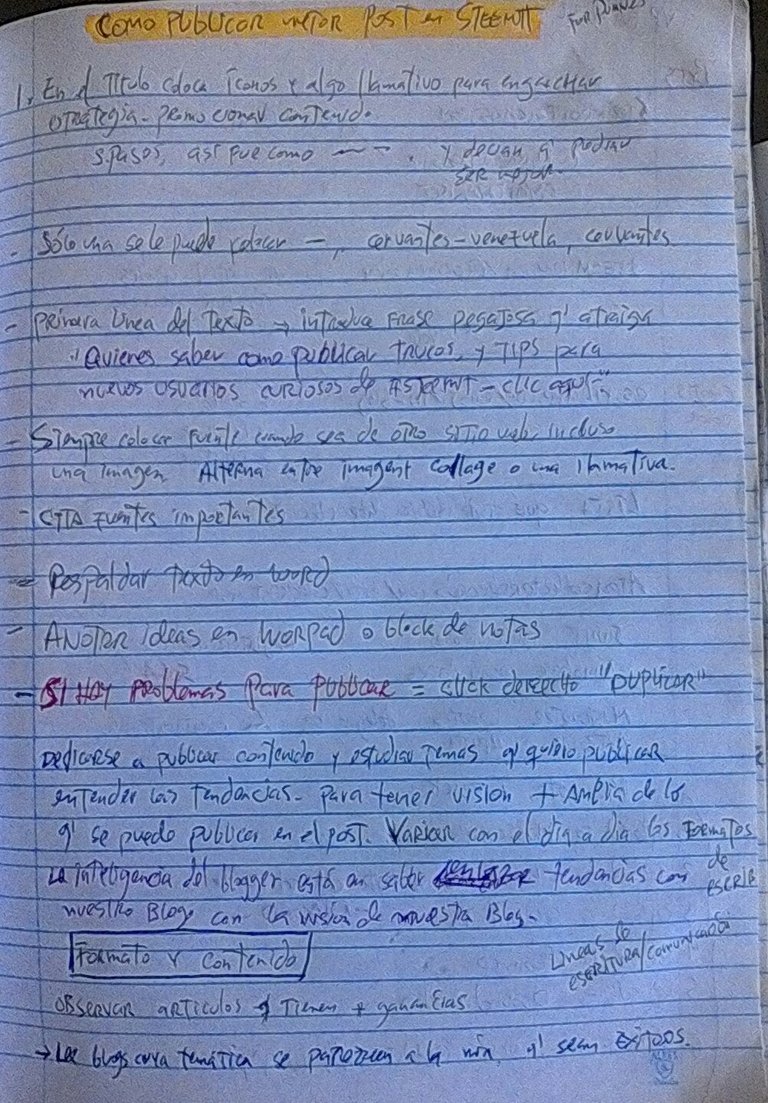 COMO PUBLICAR MEJOR POST en STEEMIT
1. En el Titulo coloca íconos y algo llamativo para enganchar
estrategia - promocionar contenido.
5 pasos, así que como
y decían q' podían
SER mejor.
- Sólo una se le puede colocar -, cervantes-venezuela, cervantes
- Primera Linea del Texto → introduce FRASE pegajosa q' atraiga
"Quieres saber como publicar trucos, y TIPS para
nuevos usuarios curiosos de STEEMIT - clic aquí"
- Siempre colocar Fuente cuando sea de otro SITIO web, incluso
una imagen. Alterna entre imagent collage o una llamativa.
- CITA Fuentes importantes
- Respaldar Texto en word
- ANOTAR ideas en WORPAD o block de notas
- SI HAY PROBLEMAS Para PUBLICAR = CLICK derecho "DUPLICAR"
Dedicarse a publicar contenido y estudiar Temas q' quiero publicar
entender las Tendencias - para tener visión + Amplia de lo
q' se puede publicar en el post. Variar con el día a día los Formatos
de
ESCRIB
La inteligencia del blogger está en saber tendencias con
nuestro Blog con la visión de nuestra Blog.
Formato y contenido
Lineas de
ESCRITURA/comunicación
OBSERVAR articulos q' Tienen + ganancias
→ Lee blogs cuya temática se parezcan a la mía q' sean EXITOSOS.